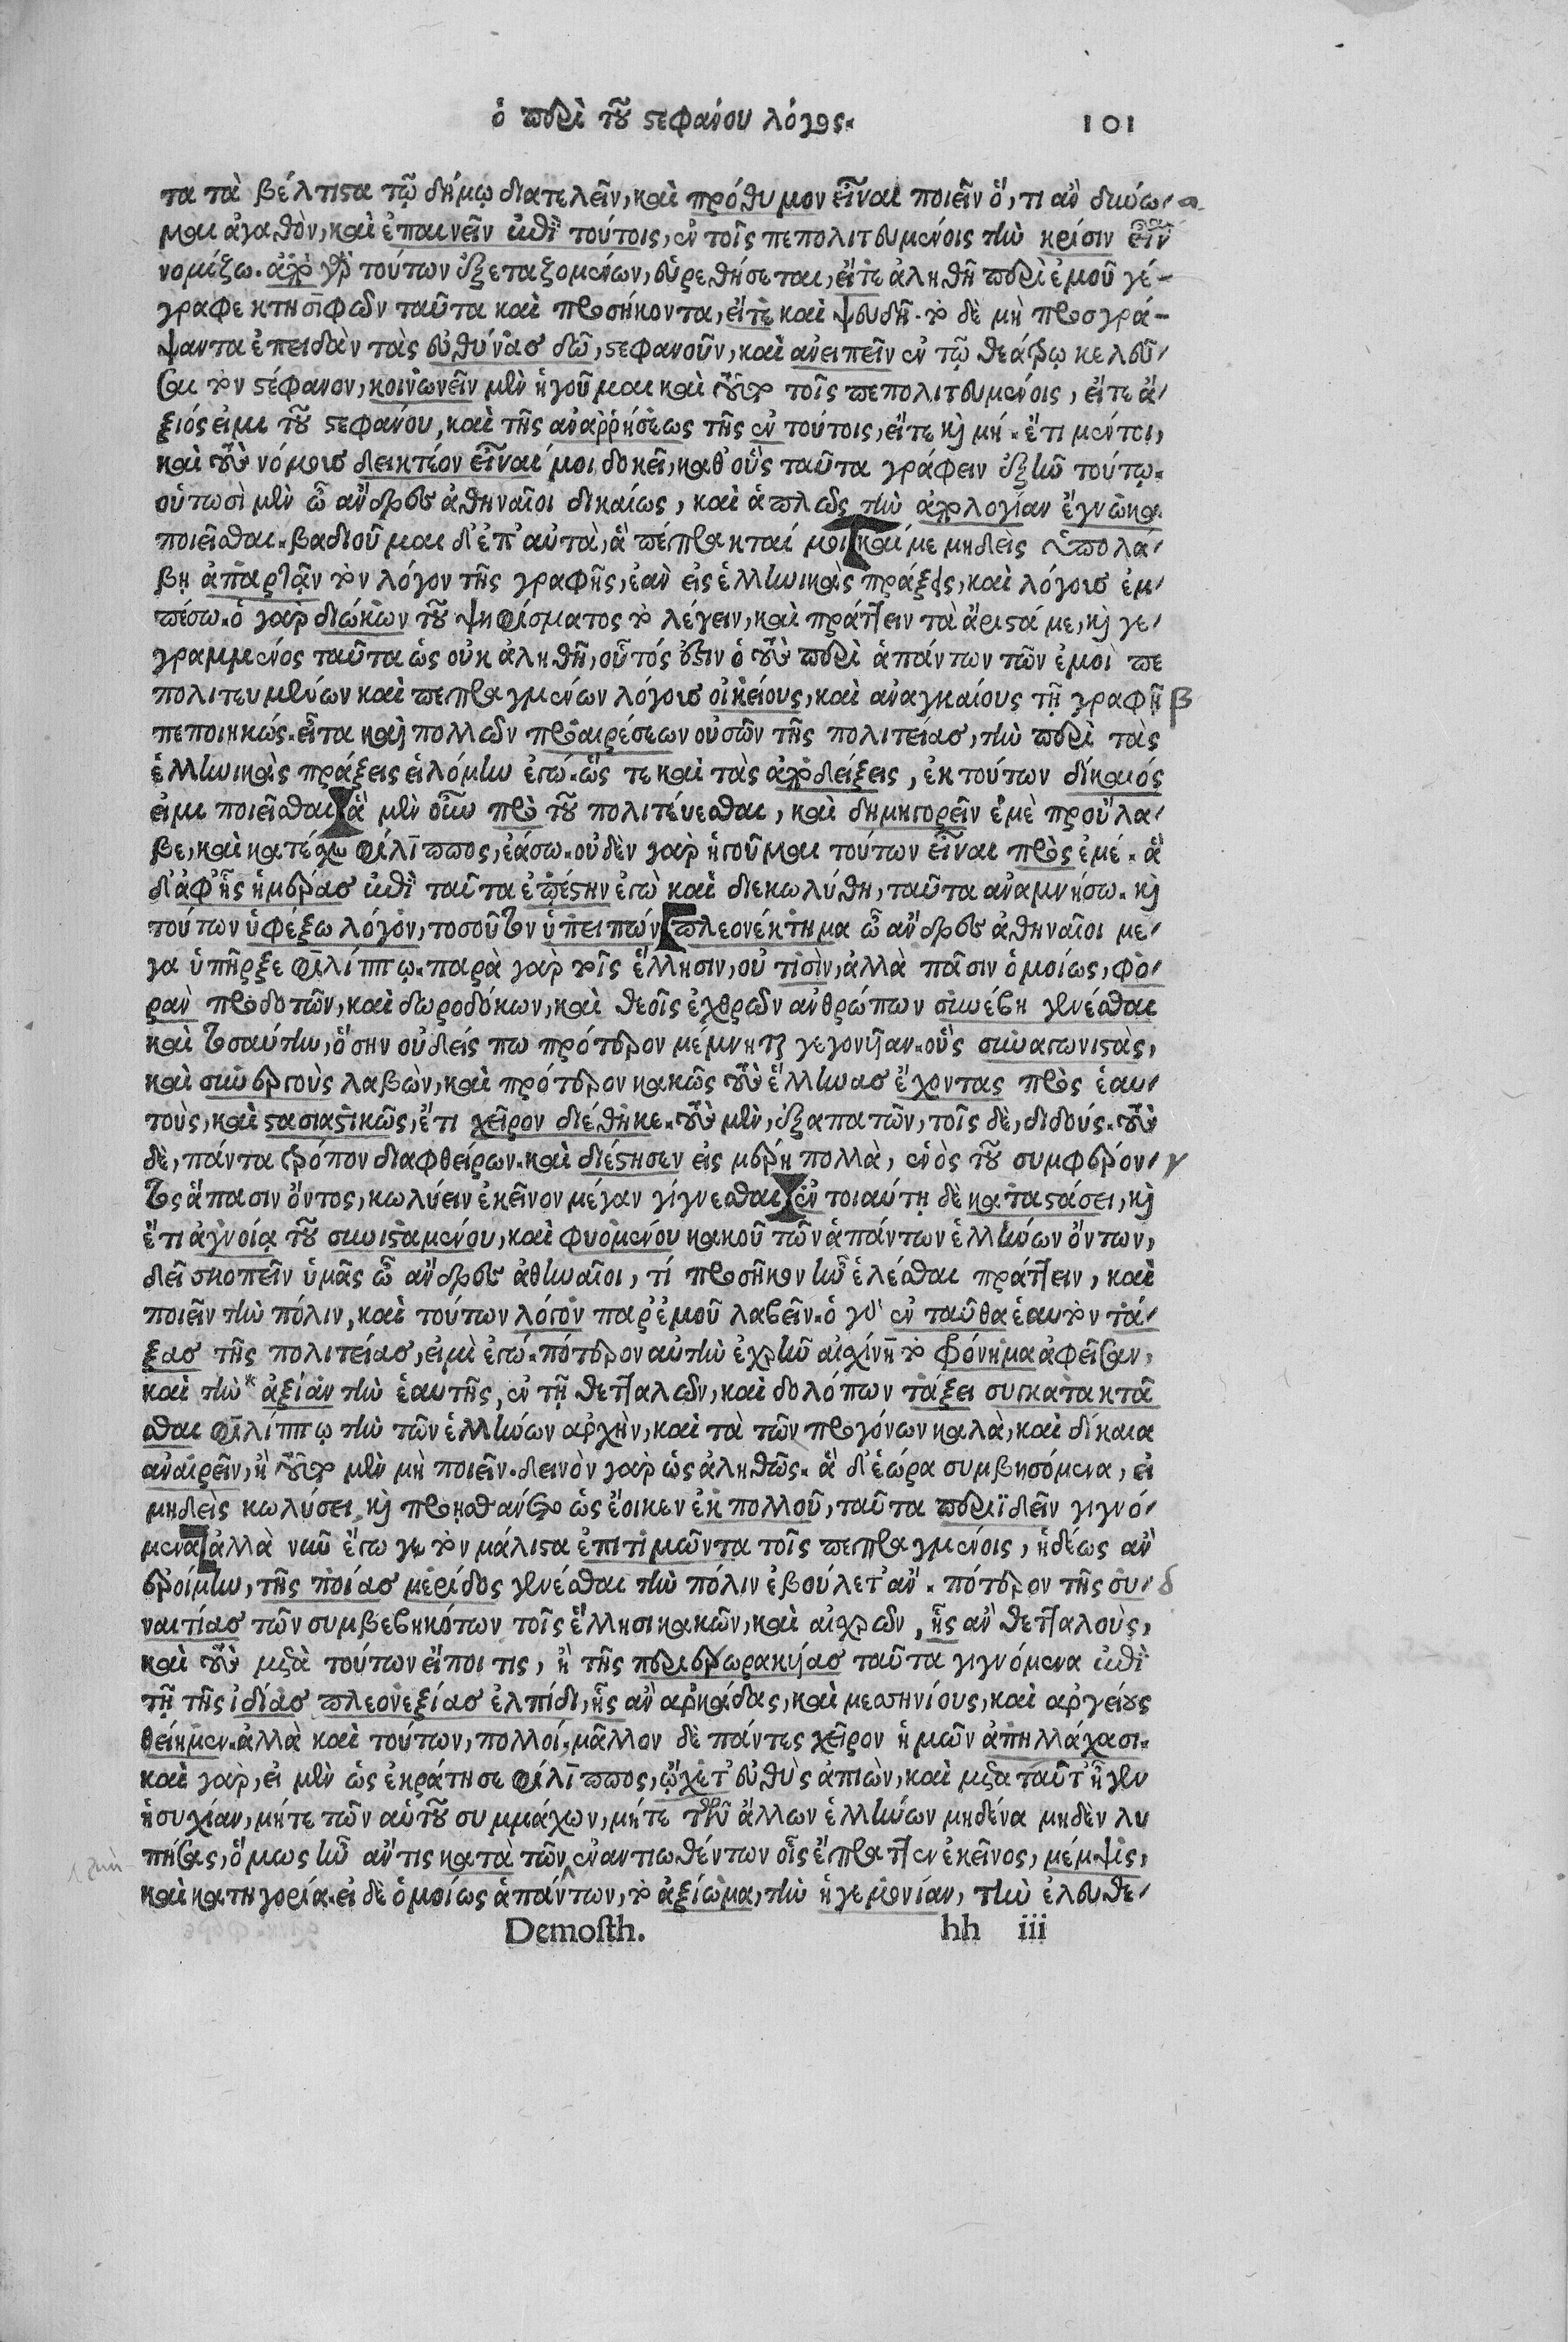 ὁ περὶ τοῦ στεφάνου λόγος. 101
τα τὰ βέλτιστα τῷ δήμῳ διατελεῖν, καὶ πρόθυμον εἶναι ποιεῖν ὅ, τι ἂν δύνω- α
μαι ἀγαθὸν, καὶ ἐπαινεῖν ἐπὶ τούτοις, ἐν τοῖς πεπολιτευμένοις τὴν κρίσιν εἶν
νομίζω. ἀπὸ γὰρ τούτων ἐξεταζομένων, εὑρεθήσεται, εἴτε ἀληθῆ περὶ ἐμοῦ γέ-
γραφε κτησιφῶν ταῦτα καὶ προσήκοντα, εἴτε καὶ ψευδῆ. τὸ δὲ μὴ προσγρά-
ψαντα ἐπειδὰν τὰς εὐθύνας δῶ, στεφανοῦν, καὶ ἀνειπεῖν ἐν τῷ θεάτρῳ κελεῦ-
σαι τὸν στέφανον, κοινωνεῖν μὲν ἡγοῦμαι καὶ τοῦτο τοῖς πεπολιτευμένοις, εἴτε ἄ-
ξιός εἰμι τοῦ στεφάνου, καὶ τῆς ἀναῤῥήσεως τῆς ἐν τούτοις, εἴτε καὶ μή. ἔτι μέντοι,
καὶ τοὺς νόμους δεικτέον εἶναί μοι δοκεῖ, καθ' οὓς ταῦτα γράφειν ἐξῆν τούτῳ.
οὑτωσὶ μὲν ὦ ἄνδρες ἀθηναῖοι δικαίως, καὶ ἁπλῶς τὴν ἀπολογίαν ἔγνωκα
ποιεῖσθαι. βαδιοῦμαι δ' ἐπ' αὐτὰ, ἃ πέπρακταί μοι καί με μηδεὶς ὑπολά-
βῃ ἀπαρτᾷν τὸν λόγον τῆς γραφῆς, ἐὰν εἰς ἑλληνικὰς πράξεις, καὶ λόγους ἐμ-
πέσω. ὁ γὰρ διώκων τοῦ ψηφίσματος τὸ λέγειν, καὶ πράττειν τὰ ἄριστά με, καὶ γε-
γραμμένος ταῦτα ὡς οὐκ ἀληθῆ, οὗτός ἐστιν ὁ τοὺς περὶ ἁπάντων τῶν ἐμοὶ πε
πολιτευμένων καὶ πεπραγμένων λόγους οἰκείους, καὶ ἀναγκαίους τῇ γραφῇ β
πεποιηκώς. εἶτα καὶ πολλῶν προαιρέσεων οὐσῶν τῆς πολιτείας, τὴν περὶ τὰς
ἑλληνικὰς πράξεις εἱλόμην ἐγώ. ὥς τε καὶ τὰς ἀποδείξεις, ἐκ τούτων δίκαιός
εἰμι ποιεῖσθαι ἃ μὲν οὖν πρὸ τοῦ πολιτεύεσθαι, καὶ δημηγορεῖν ἐμὲ προὔλα-
βε, καὶ κατέχω φίλιππος, ἐάσω. οὐδὲν γὰρ ἡγοῦμαι τούτων εἶναι πρὸς ἐμέ. ἃ
δ' ἀφ' ἧς ἡμέρας ἐπὶ ταῦτα ἐπέστην ἐγὼ καὶ διεκωλύθη, ταῦτα ἀναμνήσω. καὶ
τούτων ὑφέξω λόγον, τοσοῦτον ὑπειπών πλεονέκτημα ὦ ἄνδρες ἀθηναῖοι μέ-
γα ὑπῆρξε φιλίππῳ. παρὰ γὰρ τοῖς ἕλλησιν, οὐ τισὶν, ἀλλὰ πᾶσιν ὁμοίως, φο-
ρὰν προδοτῶν, καὶ δωροδόκων, καὶ θεοῖς ἐχθρῶν ἀνθρώπων συνέβη γενέσθαι
καὶ τοσαύτην, ὅσην οὐδείς πω πρότερον μέμνηται γεγονυῖαν. οὓς συναγωνιστὰς,
καὶ συνεργοὺς λαβὼν, καὶ πρότερον κακῶς τοὺς ἕλληνας ἔχοντας πρὸς ἑαυ-
τοὺς, καὶ στασιαστικῶς, ἔτι χεῖρον διέθηκε. τοὺς μὲν, ἐξαπατῶν, τοῖς δὲ, διδούς. τοὺς
δὲ, πάντα τρόπον διαφθείρων. καὶ διέστησεν εἰς μέρη πολλὰ, ἑνὸς τοῦ συμφέρον- γ
τος ἅπασιν ὄντος, κωλύειν ἐκεῖνον μέγαν γίγνεσθαι ἐν τοιαύτῃ δὲ καταστάσει, καὶ
ἔτι ἀγνοίᾳ τοῦ συνισταμένου, καὶ φυομένου κακοῦ τῶν ἁπάντων ἑλλήνων ὄντων,
δεῖ σκοπεῖν ὑμᾶς ὦ ἄνδρες ἀθηναῖοι, τί προσῆκον ἦν ἑλέσθαι πράττειν, καὶ
ποιεῖν τὴν πόλιν, καὶ τούτων λόγον παρ' ἐμοῦ λαβεῖν. ὁ γὰρ ἐν ταῦθα ἑαυτὸν τά-
ξας τῆς πολιτείας, εἰμὶ ἐγώ. πότερον αὐτὴν ἐχρῆν αἰσχίνη τὸ φρόνημα ἀφεῖσαν,
καὶ τὴν* ἀξίαν τὴν ἑαυτῆς, ἐν τῇ θετταλῶν, καὶ δολόπων τάξει συγκατακτᾶ
σθαι φιλίππῳ τὴν τῶν ἑλλήνων ἀρχὴν, καὶ τὰ τῶν προγόνων καλὰ, καὶ δίκαια
ἀναιρεῖν, ἢ τοῦτο μὲν μὴ ποιεῖν. δεινὸν γὰρ ὡς ἀληθῶς. ἃ δ' ἑώρα συμβησόμενα, εἰ
μηδεὶς κωλύσει, καὶ προῃσθάνετο ὡς ἔοικεν ἐκ πολλοῦ, ταῦτα περιϊδεῖν γιγνό-
μενα ἀλλὰ νῦν ἔγω γε τὸν μάλιστα ἐπιτιμῶντα τοῖς πεπραγμένοις, ἡδέως ἂν
ἐροίμην, τῆς ποίας μερίδος γενέσθαι τὴν πόλιν ἐβούλετ' ἄν. πότερον τῆς συ- δ
ναιτίας τῶν συμβεβηκότων τοῖς ἕλλησι κακῶν, καὶ αἰσχρῶν, ἧς ἂν θετταλοὺς,
καὶ τοὺς μετὰ τούτων εἴποι τις, ἢ τῆς περιεωρακυίας ταῦτα γιγνόμενα ἐπὶ
τῇ τῆς ἰδίας πλεονεξίας ἐλπίδι, ἧς ἂν ἀρκάδας, καὶ μεσσηνίους, καὶ ἀργείους
θείημεν. ἀλλὰ καὶ τούτων, πολλοί, μᾶλλον δὲ πάντες χεῖρον ἡμῶν ἀπηλλάχασι.
καὶ γὰρ, εἰ μὲν ὡς ἐκράτησε φίλιππος, ᾤχετ' εὐθὺς ἀπιὼν, καὶ μετὰ ταῦτ' ἦγεν
ἡσυχίαν, μήτε τῶν αὑτοῦ συμμάχων, μήτε τῶν ἄλλων ἑλλήνων μηδένα μηδὲν λυ
πήσας, ὅμως ἦν ἄν τις κατὰ τῶν ἐναντιωθέντων οἷς ἔπραττεν ἐκεῖνος, μέμψις,
καὶ κατηγορία. εἰ δὲ ὁμοίως ἁπάντων, τὸ ἀξίωμα, τὴν ἡγεμονίαν, τὴν ἐλευθε-
Demosth. hh iii